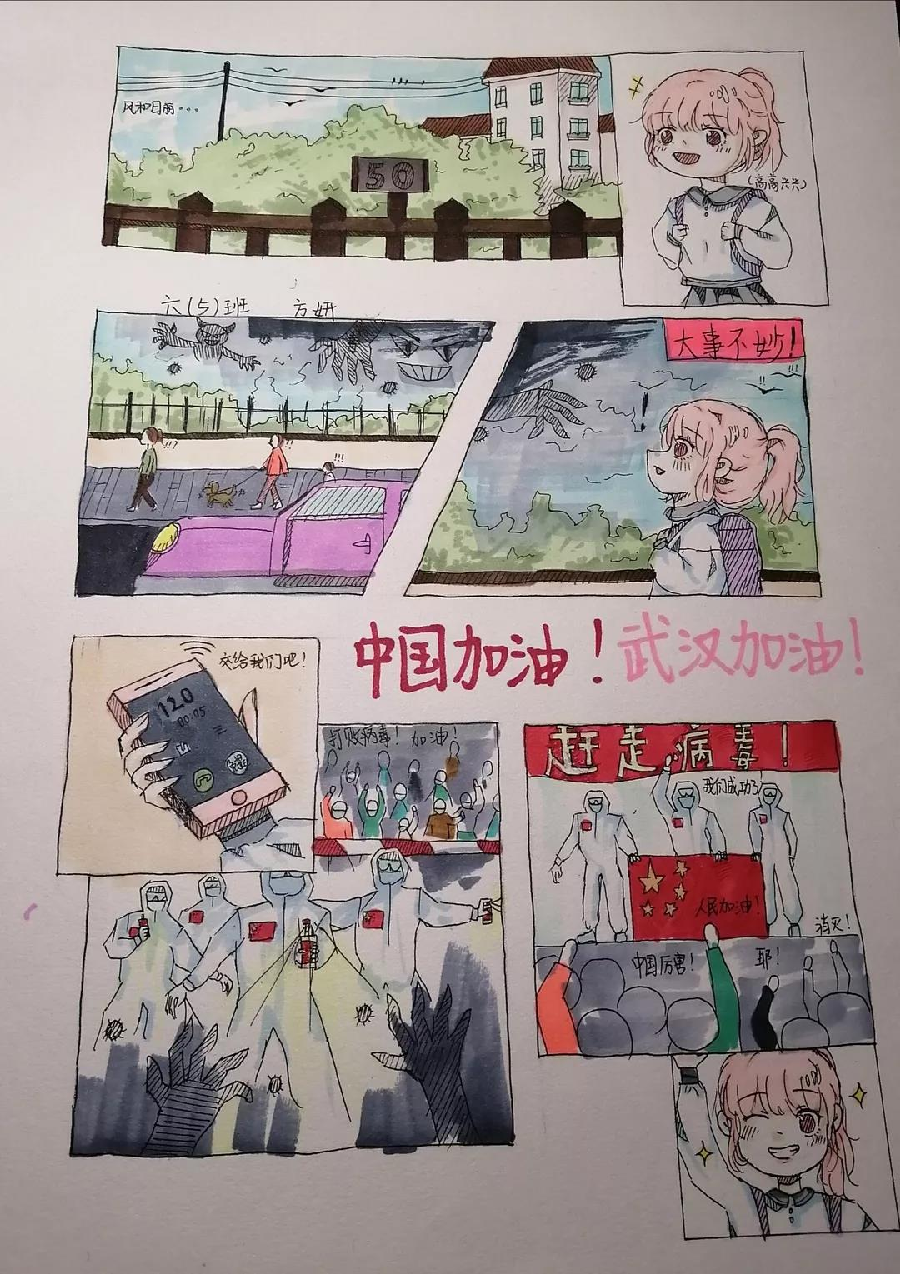 风和日丽。。。
50
(高高兴兴)
六(5)班 方妍
!!
!!!
大事不妙!
!!!
!
中国加油!武汉加油!
交给我们吧!
120
00:05
打败病毒! 加油!
赶走病毒!
我们成功了
人民加油!
消灭!
中国厉害!
耶!